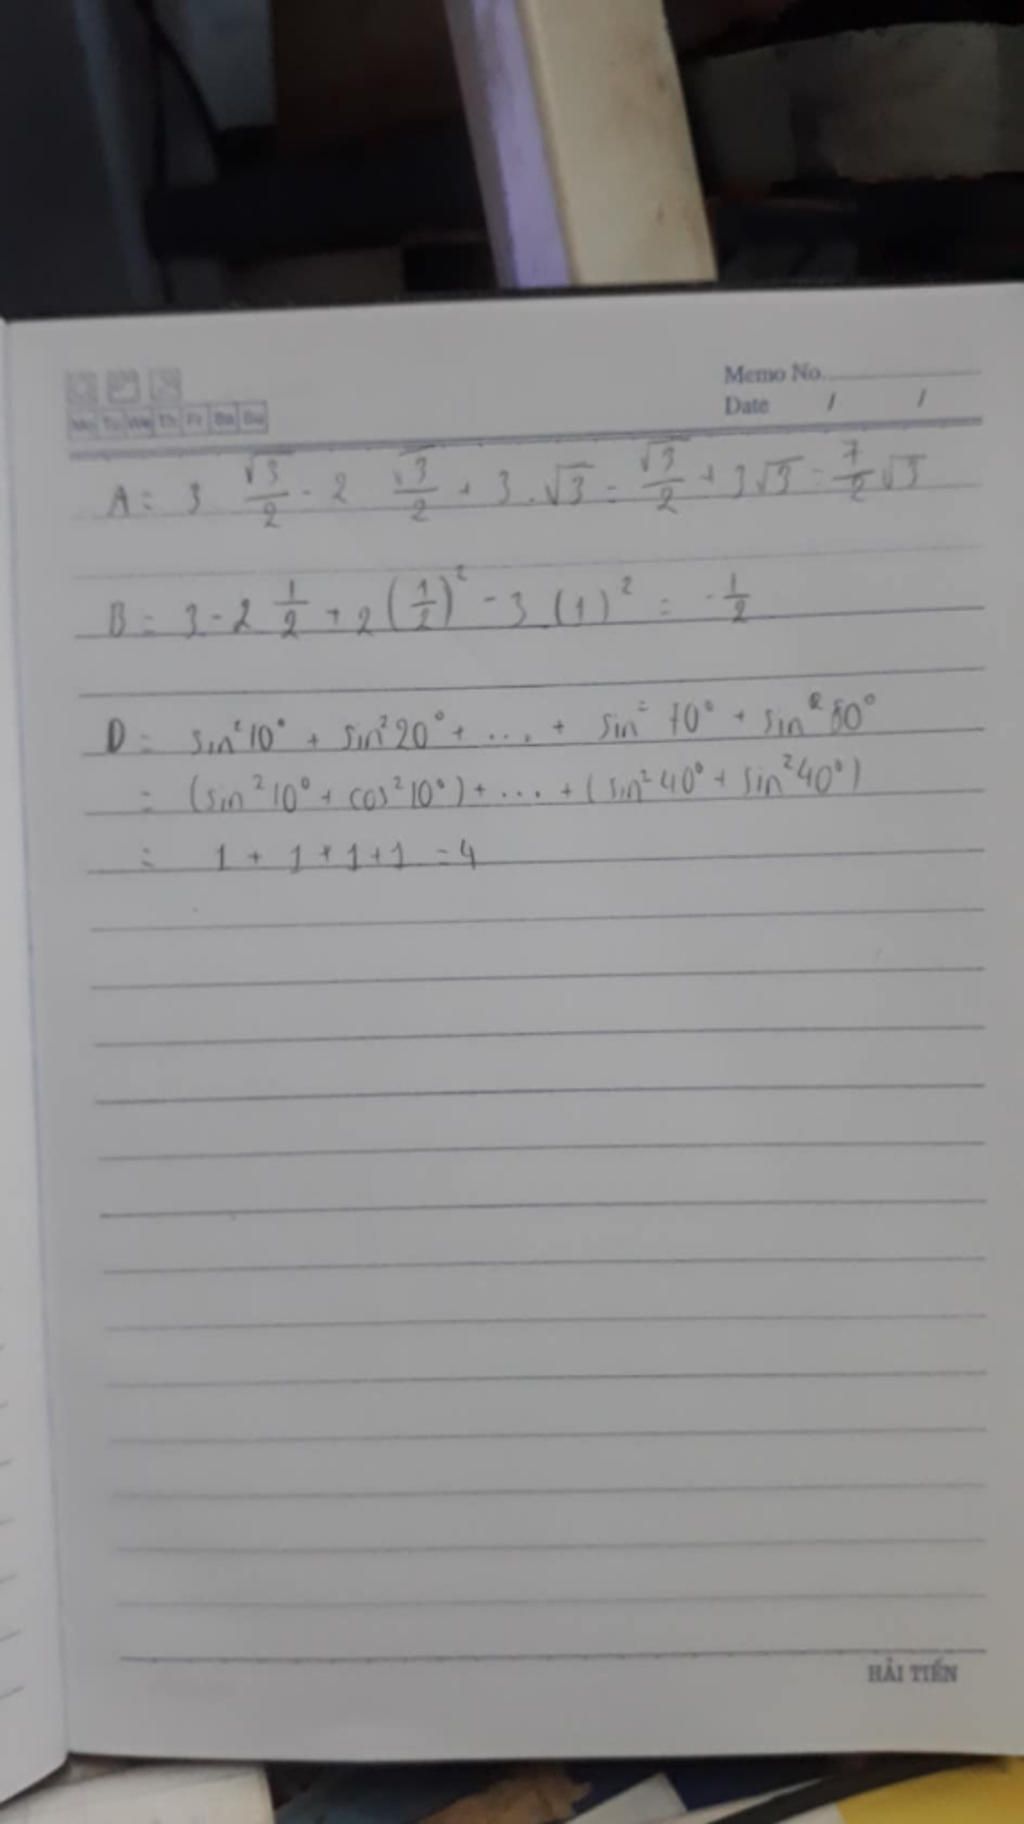 Memo No.
Date / /
Mo Tu We Th Fr Sa Su
A = 3 √3/2 - 2 √3/2 + 3 . √3 = √3/2 + 3√3 = 7/2 √3
B = 3 - 2 1/2 + 2 (1/2)² - 3 (1)² = -1/2
D = sin²10° + sin²20° + ... + sin²70° + sin²80°
= (sin²10° + cos²10°) + ... + (sin²40° + sin²40°)
= 1 + 1 + 1 + 1 = 4
HẢI TIẾN